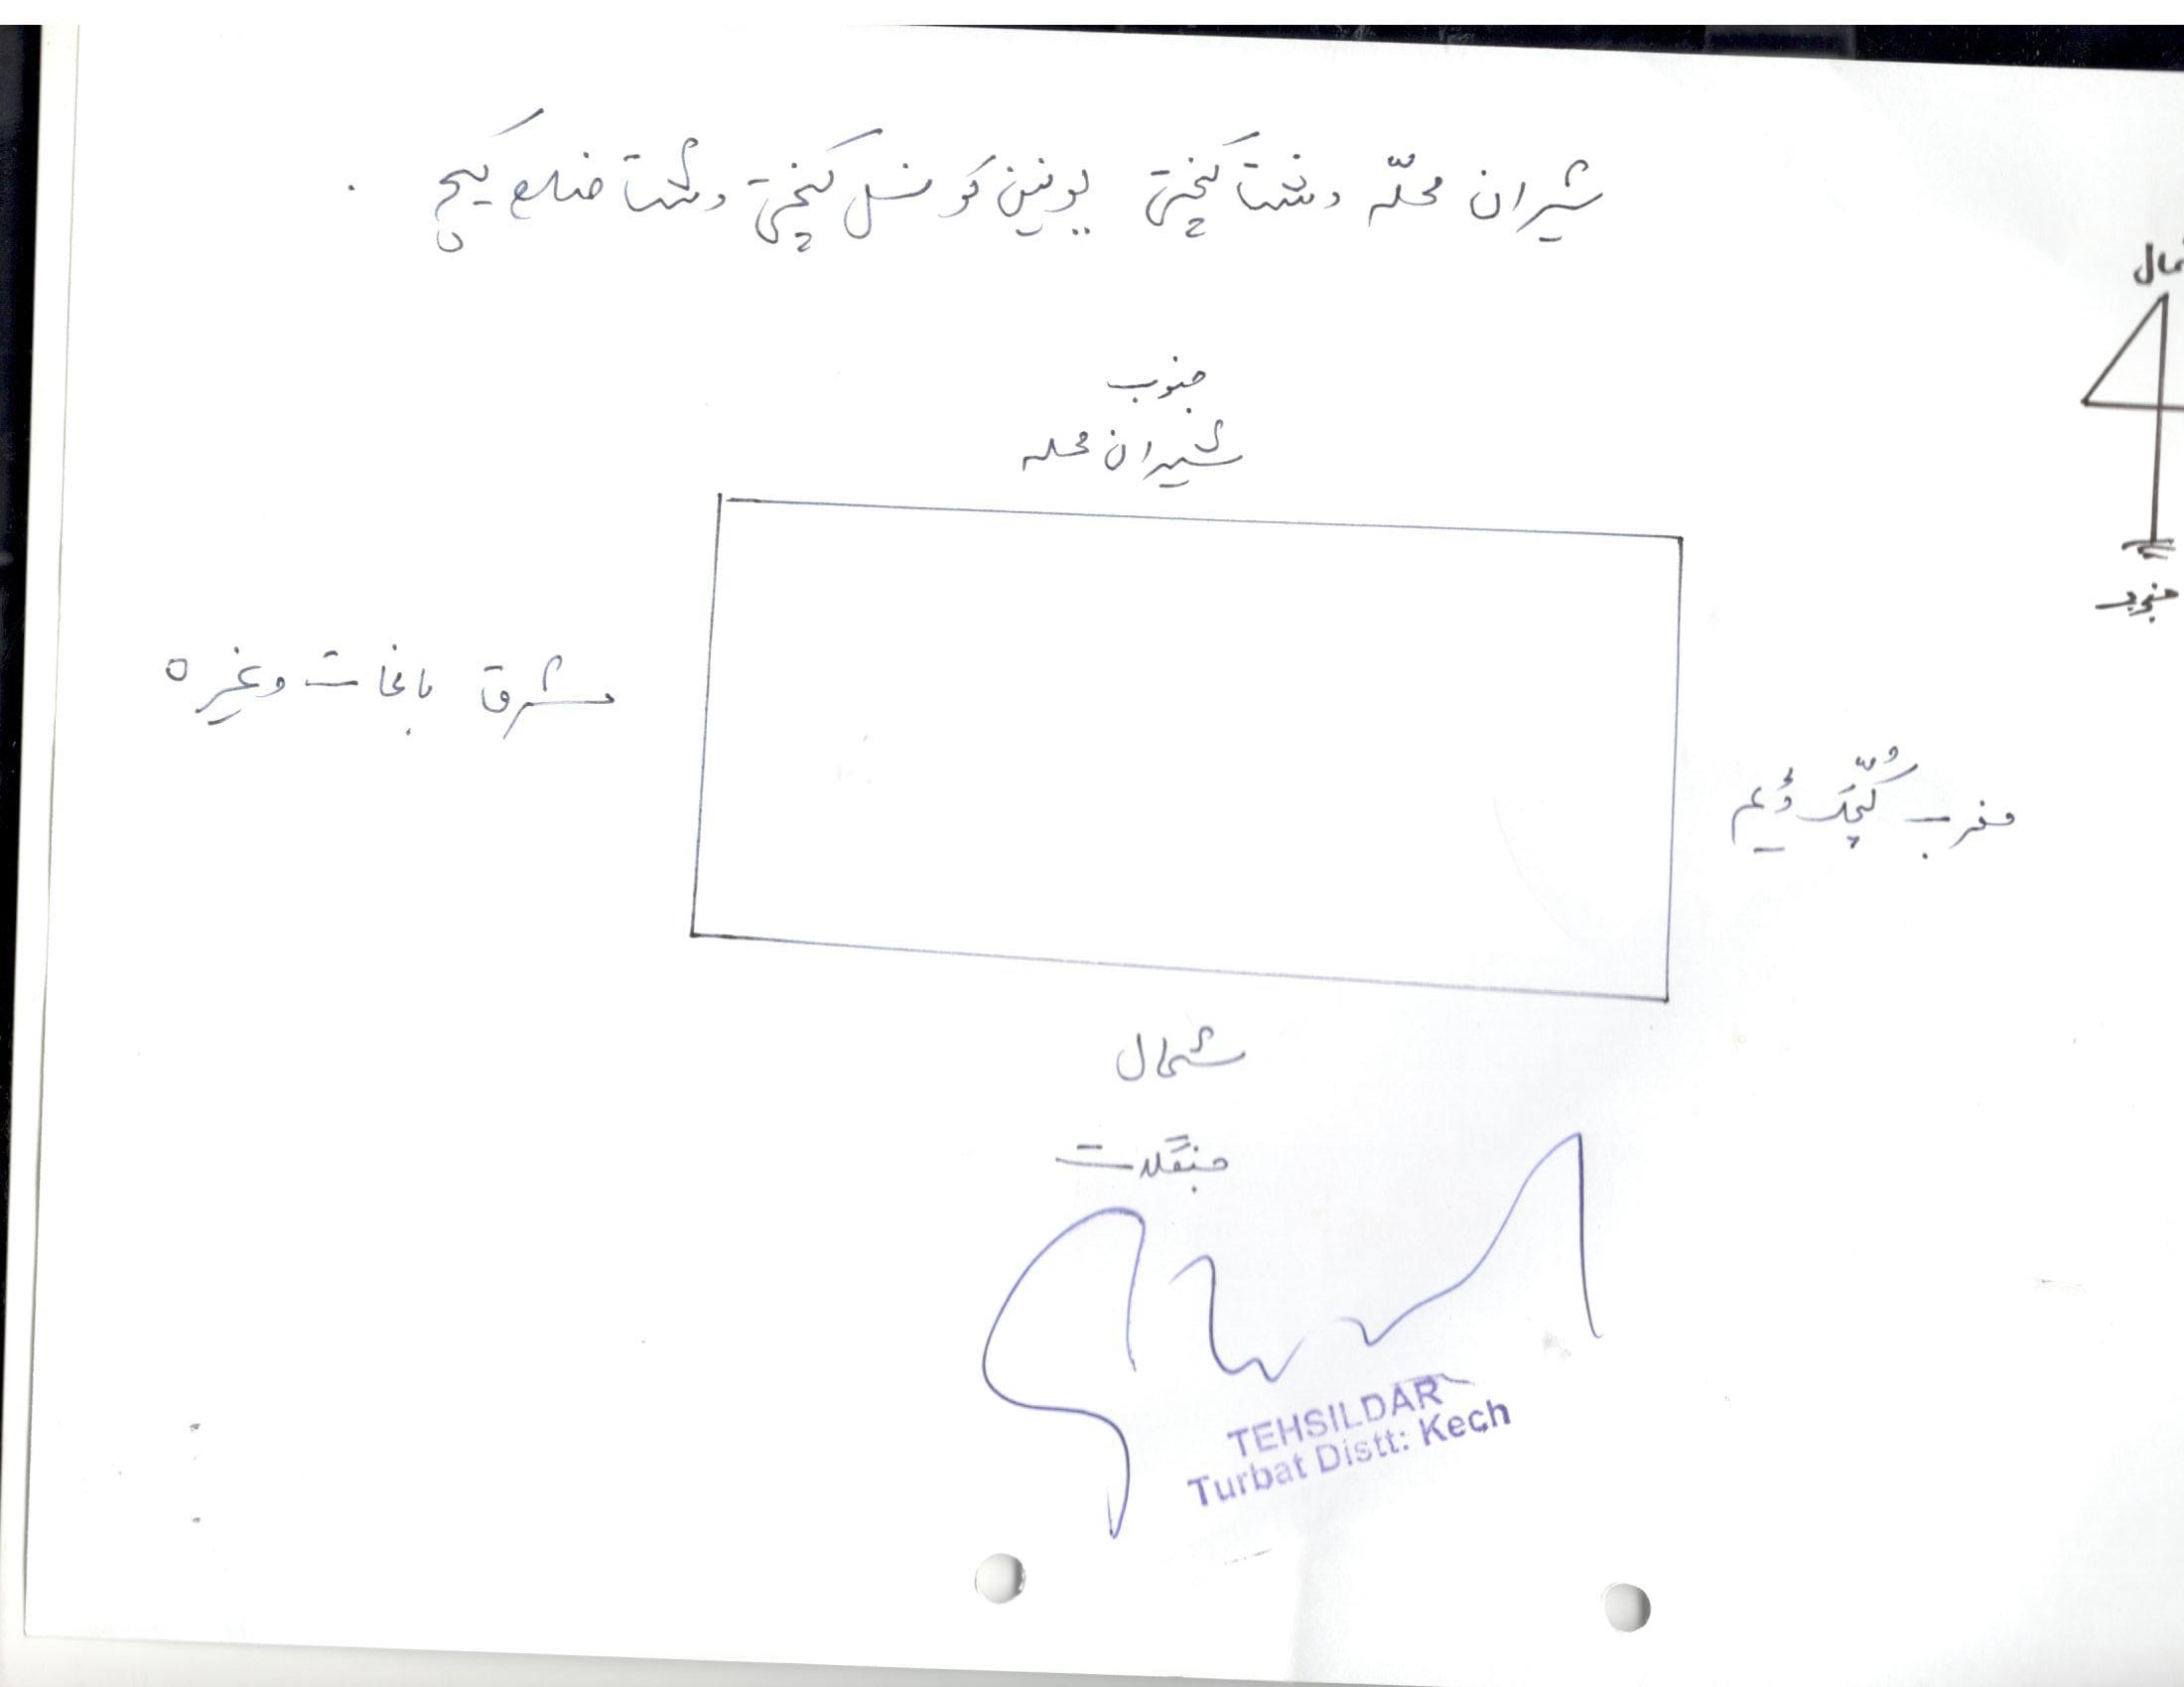 شیران محلّہ دشت کنچتی یونین کونسل کنچتی دشت ضلع کیچ
شمال
جنوب
جنوب
شیران محلہ
مشرق باغات وغیرہ
مغرب کُچّک
شمال
جنگلات
TEHSILDAR
Turbat Distt: Kech